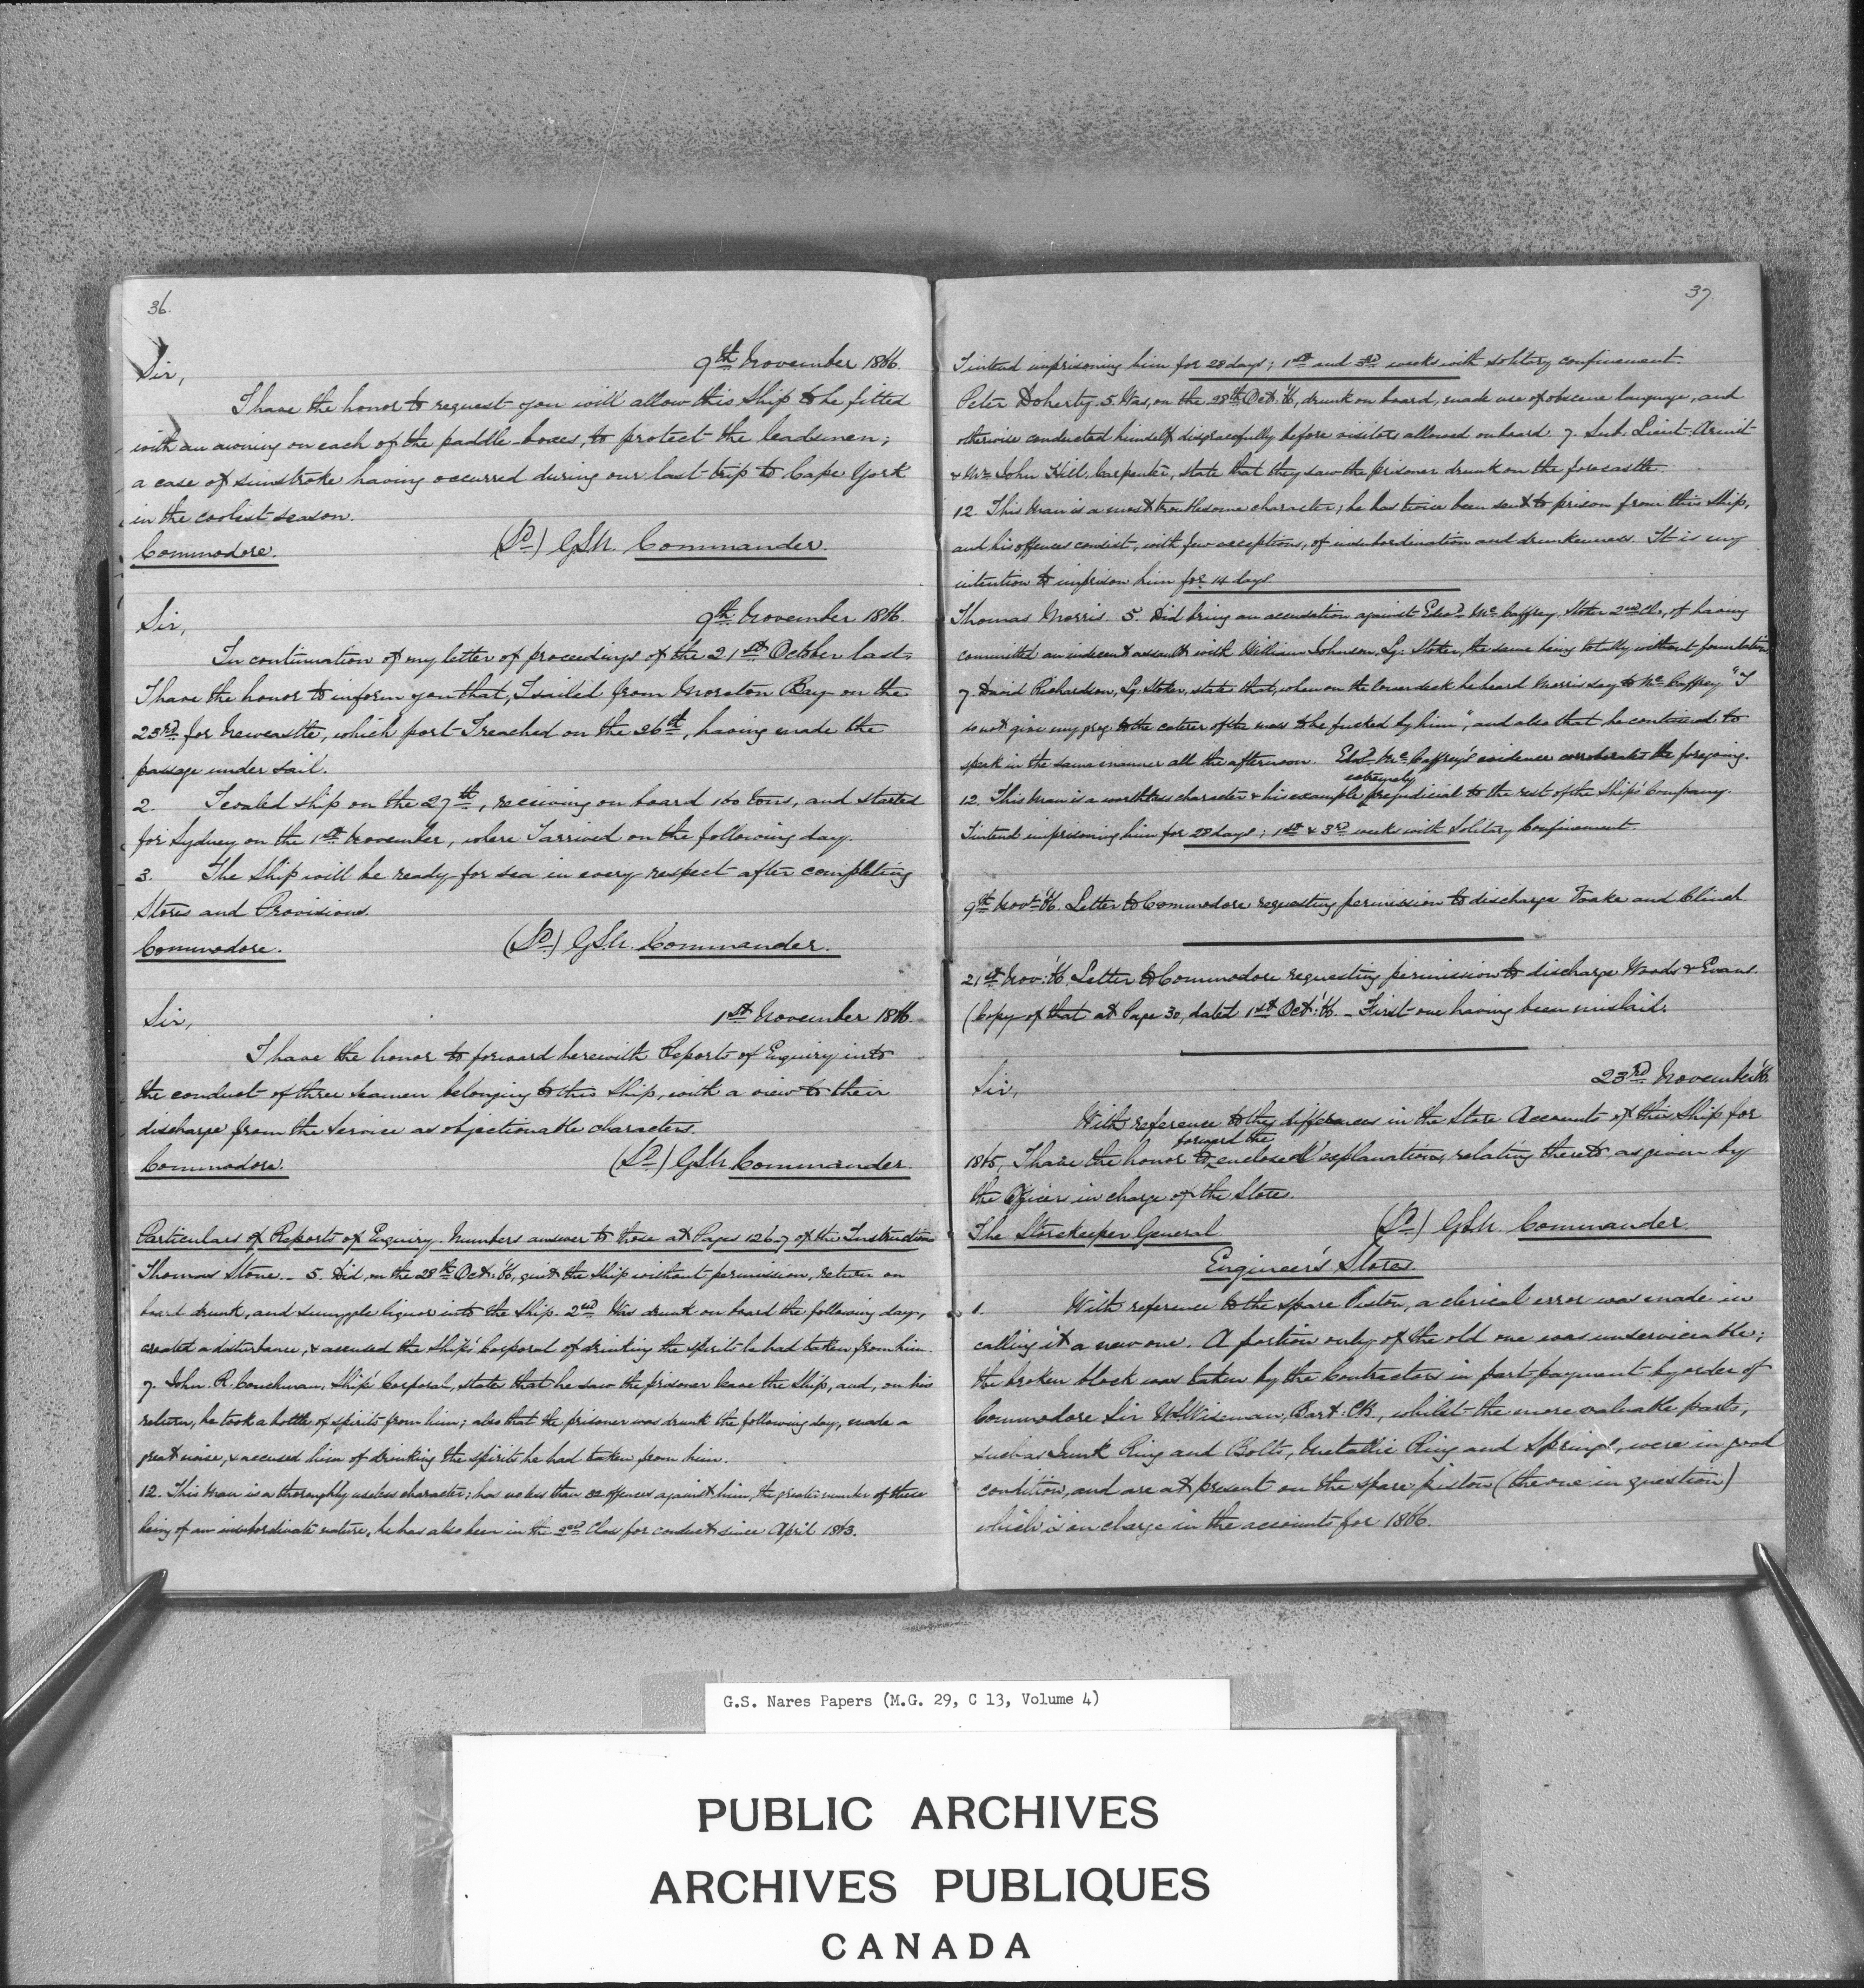 36.
9th November 1866.
Sir,
I have the honor to request you will allow this Ship to be fitted
with an awning on each of the paddle-boxes, to protect the leadsmen;
a case of sunstroke having occurred during our last trip to Cape York
in the coolest season.
Commodore. (Sd) GSN. Commander.
9th November 1866.
Sir,
In continuation of my letter of proceedings of the 21st October last,
I have the honor to inform you that, I sailed from Moreton Bay on the
23rd for Newcastle, which port I reached on the 26th, having made the
passage under sail.
2. I coaled ship on the 27th, receiving on board 160 tons, and started
for Sydney on the 1st November, where I arrived on the following day.
3. The Ship will be ready for sea in every respect after completing
Stores and Provisions.
Commodore. (Sd) GSN. Commander.
1st November 1866.
Sir,
I have the honor to forward herewith Reports of Enquiry into
the conduct of three seamen belonging to this Ship, with a view to their
discharge from the Service as objectionable characters.
Commodore. (Sd) GSN. Commander.
Particulars of Reports of Enquiry. Numbers answer to those at Pages 126-7 of the Instructions
Thomas Stone. - 5. Did, on the 28th Oct: '66, quit the Ship without permission, return on
board drunk, and smuggle liquor into the Ship. 2nd Was drunk on board the following day,
created a disturbance, & accused the Ship's Corporal of drinking the spirits he had taken from him.
7. John. R. Couchman, Ship's Corporal, states that he saw the prisoner leave the Ship, and, on his
return, he took a bottle of spirits from him; also that the prisoner was drunk the following day, made a
great noise, & accused him of drinking the spirits he had taken from him.
12. This man is a thoroughly useless character; has no less than 32 offences against him, the greater number of these
being of an insubordinate nature, he has also been in the 2nd Class for conduct since April 1863.
37.
I intend imprisoning him for 28 days; 1st and 3rd weeks with solitary confinement.
Peter Doherty. 5. Was, on the 28th Oct: '66, drunk on board, made use of obscene language, and
otherwise conducted himself disgracefully before visitors allowed on board. 7. Sub. Lieut.
& Mr John Hill, Carpenter, state that they saw the prisoner drunk on the forecastle.
12. This man is a most troublesome character; he has twice been sent to prison from this Ship,
and his offences consist, with few exceptions, of insubordination and drunkenness. It is my
intention to imprison him for 14 days.
Thomas Morris. 5. Did bring an accusation against Edwd McCaffrey, Stoker 2nd Cl:, of having
committed an indecent assault with William Johnson, Lg: Stoker, the same being totally without foundation.
7. David Richardson, Lg. Stoker, states that, when on the lower deck he heard Morris say to McCaffrey "I
do not give my grog to the caterer of the mess to be fucked by him", and also that he continued to
speak in the same manner all the afternoon. Edwd McCaffrey's evidence corroborates the foregoing.
extremely
12. This man is a worthless character & his example prejudicial to the rest of the Ship's Company.
I intend imprisoning him for 28 days; 1st & 3rd weeks with Solitary Confinement.
9th Novr '66. Letter to Commodore requesting permission to discharge Toake and Clinch.
21st Nov: '66. Letter to Commodore requesting permission to discharge Woods & Evans.
(Copy of that at Page 30, dated 1st Oct: '66. - First one having been mislaid.
23rd November '66.
Sir,
With reference to the differences in the Store Accounts of this Ship for
forward the
1865, I have the honor to enclosed explanations, relating thereto as given by
the Officers in charge of the Stores.
The Storekeeper General (Sd) GSN. Commander.
Engineer's Stores.
1. With reference to the spare Piston, a clerical error was made in
calling it a new one. A portion only of the old one was unserviceable;
the broken block was taken by the Contractors in part-payment by order of
Commodore Sir W.Wiseman, Bart: CB, whilst the more valuable parts,
such as Junk Ring and Bolts, Metallic Ring and Springs, were in good
condition, and are at present on the spare piston (the one in question)
which is on charge in the accounts for 1866.
G.S. Nares Papers (M.G. 29, C 13, Volume 4)
PUBLIC ARCHIVES
ARCHIVES PUBLIQUES
CANADA